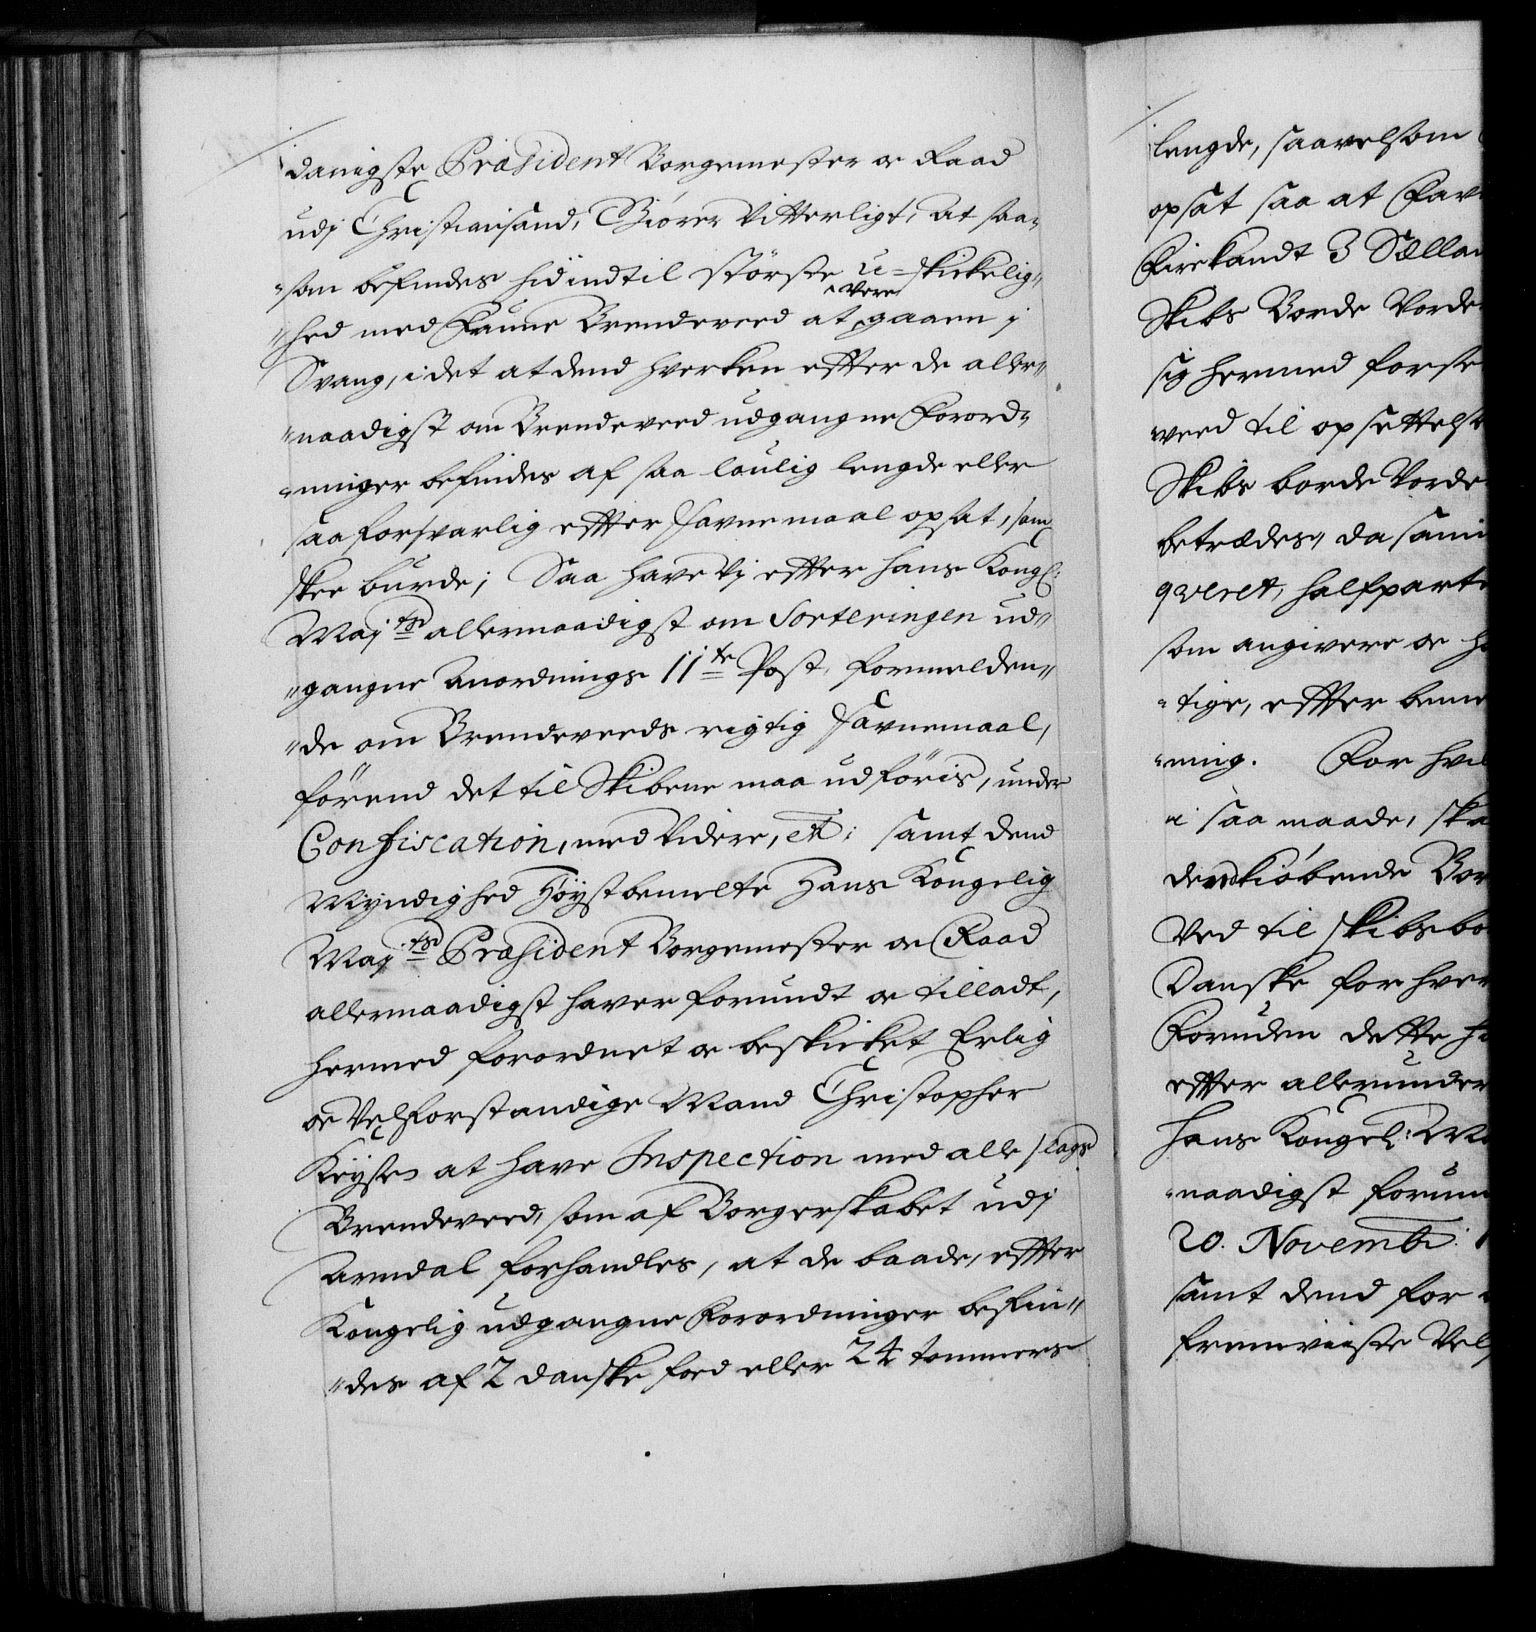 danigste Præsident Borgemester oc Raad
udj Christiansand, Giörer Vitterligt, At saa-
-som befindes hid indtil störste u-skickelig"
"hed med Faune Brendeveed at vere gaaen j
Svang, i det at dend hverken effter de aller"
"naadigst om Brendeveed udgangne Forord-
-ninger befindes af saa laulig lengde eller
saa forsvarlig effter favnemaal opsat, som
skee burde; Saa have Vj effter Hans Kongl:
Maj:ts allernaadigst om Sorteringen ud"
"gangne Anordnings 11te Post, formelden"
"de om Brendeveeds rigtig favnemaal,
förend det til Skibene maa udföris, under
Confiscation, med Videre, etc: samt dend
Myndighed Höystbemelte Hans Kongelig
Maj:ts Præsident Borgemester oc Raad
allernaadigst haver forundt oc tilladt,
hermed forordnet oc beskicket Erlig
oc Velforstandige Mand Christopher
Keyser at have Inspection med alle slags
Brendeveed, som af Borgerskabet udj
Arendal forhandles, at de baade, effter
Kongelig udgangne Forordninger befin"
"des af 2 danske foed eller 24 tommers
lengde, saavelsom
opsat saa at Fav
Firekandt 3 Sællan
Skibs Borde Vorde
sig hermed forse
veed til opsettelse
Skibs borde Vorde
betrædes, da sam
qveret, halfparte
som angivere oc h
-tige, effter bem
-ning. For hvil
i saa maade, ska
den kiöbende Bor
Ved til skibsbo
Danske for hver
Foruden dette h
effter allerunder
Hans Kongel: M
-naadigst forun
20. Novembr: 1
samt dend for
fremviiste Vel